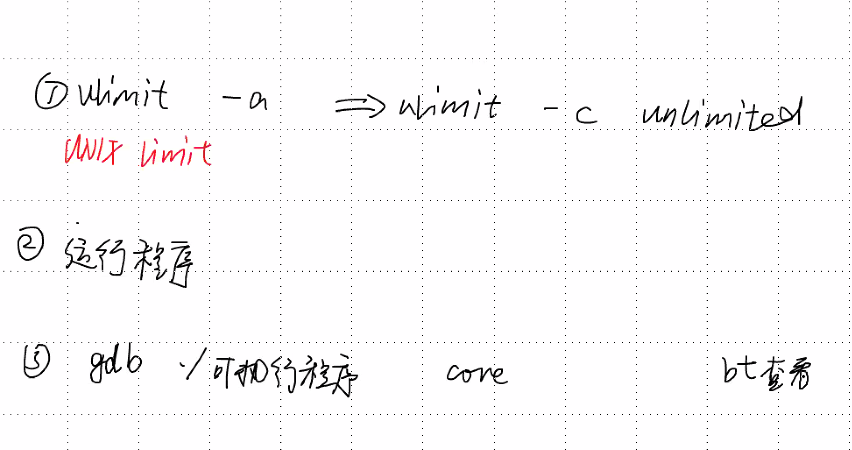 ① ulimit -a ⇒ ulimit -c unlimited
UNIX limit
② 运行程序
③ gdb ./可执行程序 core bt查看